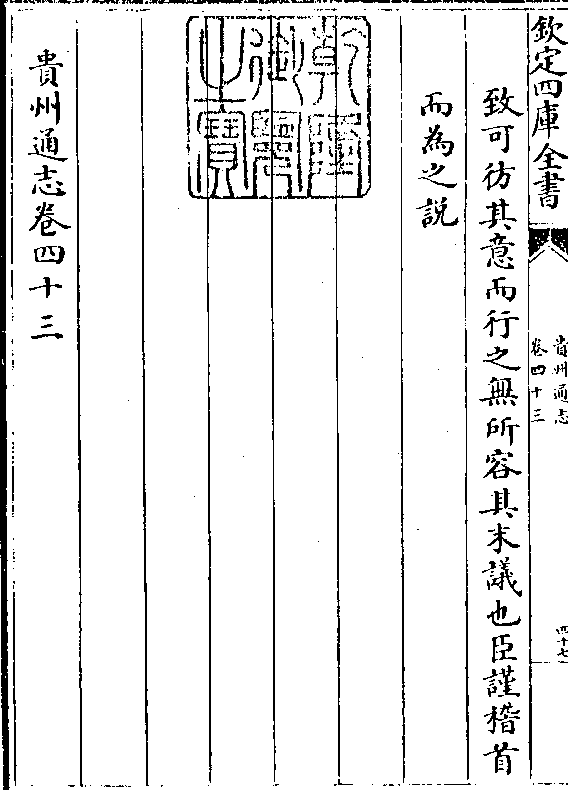 欽定四庫全書
貴州通志
卷四十三
四十七
致可彷其意而行之無所容其末議也臣謹稽首
而為之說
乾隆御覽之寶
貴州通志卷四十三